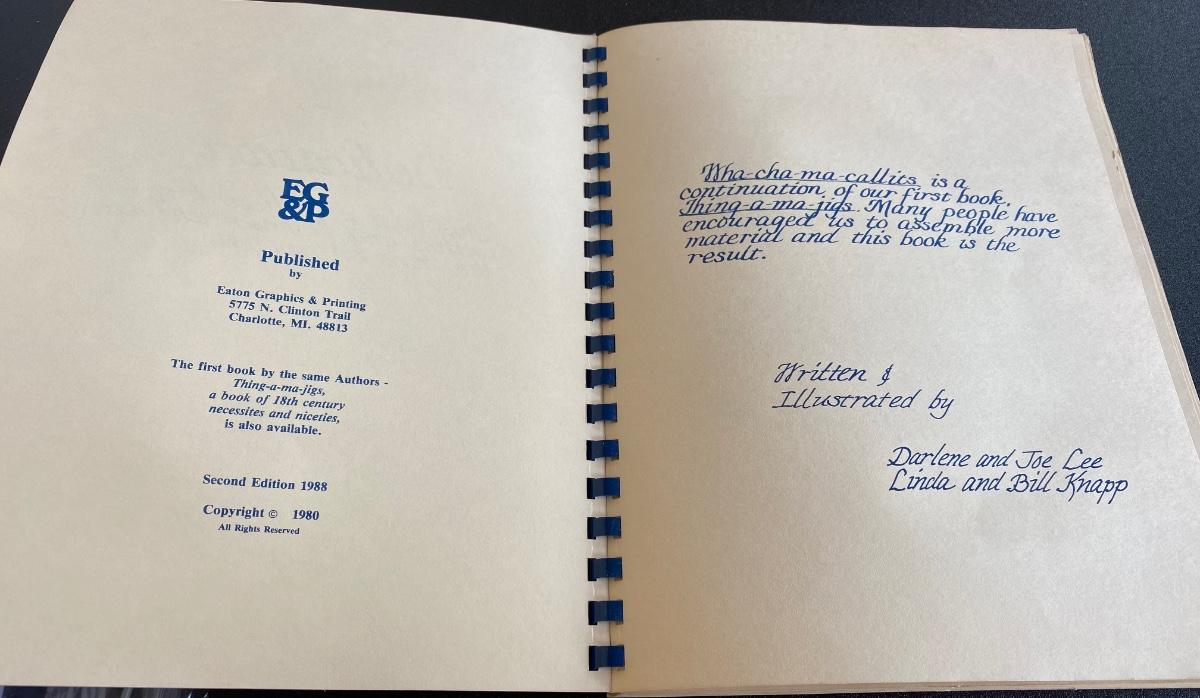 EG
&P
Published
by
Eaton Graphics & Printing
5775 N. Clinton Trail
Charlotte, MI. 48813
The first book by the same Authors -
Thing-a-ma-jigs,
a book of 18th century
necessites and niceties,
is also available.
Second Edition 1988
Copyright © 1980
All Rights Reserved
Wha-cha-ma-callits is a
continuation of our first book,
Thing-a-ma-jigs. Many people have
encouraged us to assemble more
material and this book is the
result.
Written &
Illustrated by
Darlene and Joe Lee
Linda and Bill Knapp